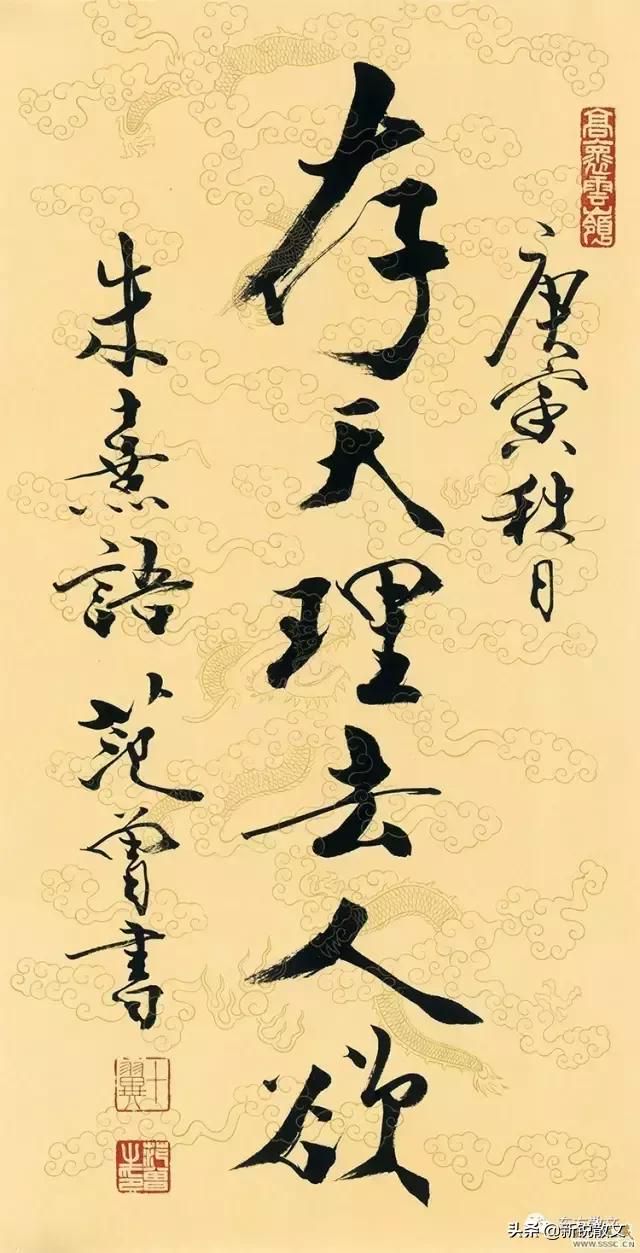 庚寅秋日
存天理去人欲
朱熹語 范曾書
十翼
头条 @新锐散文
WWW.SSSC.CN